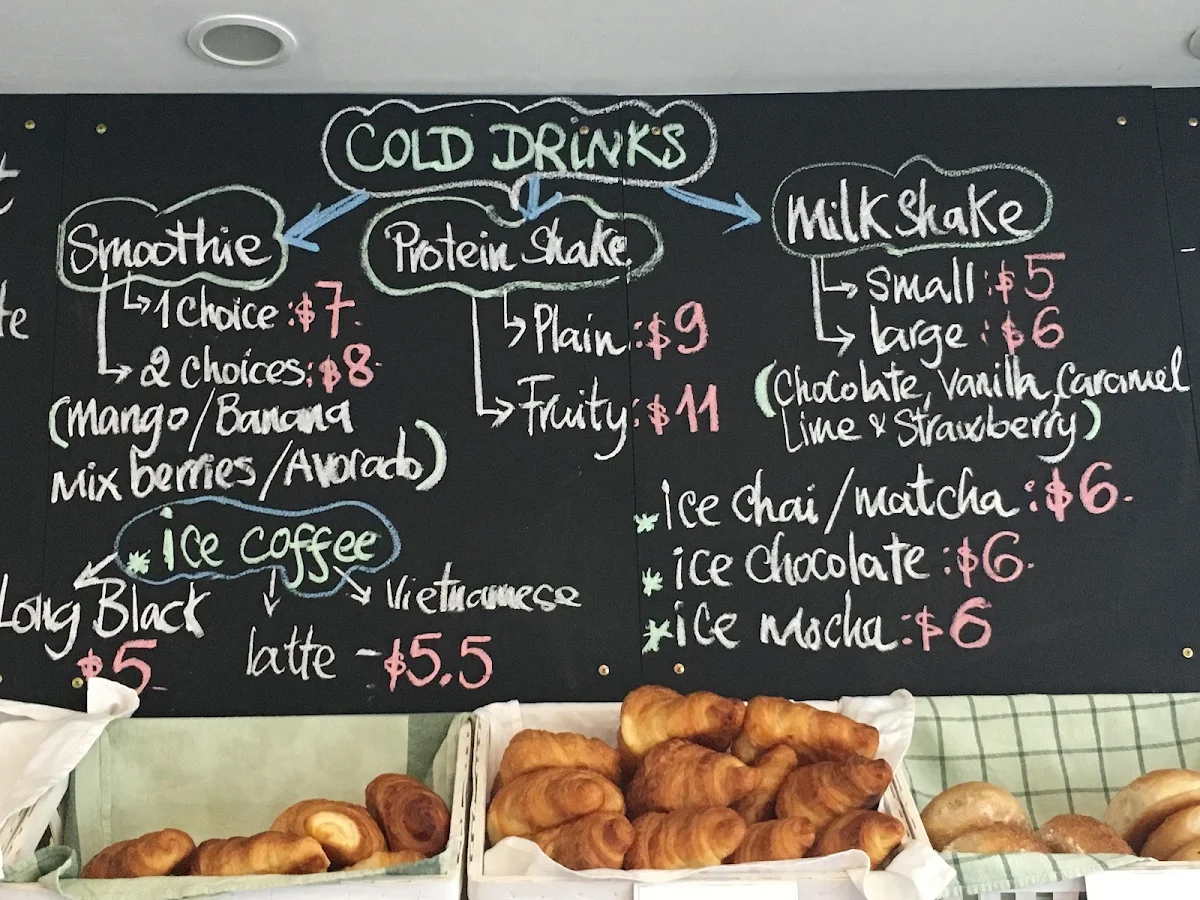 COLD DRINKS
Smoothie
1 choice :$7.
2 choices:$8.
(Mango/Banana
Mix berries/Avorado)
Protein Shake
Plain:$9
Fruity:$11
Milk Shake
small:$5
large:$6
(Chocolate, Vanilla, Caramel
Lime & Strawberry)
*ice coffee
Long Black
$5.
latte -$5.5
Vietnamese
*ice chai/matcha:$6.
*ice chocolate:$6.
*ice Mocha:$6
te